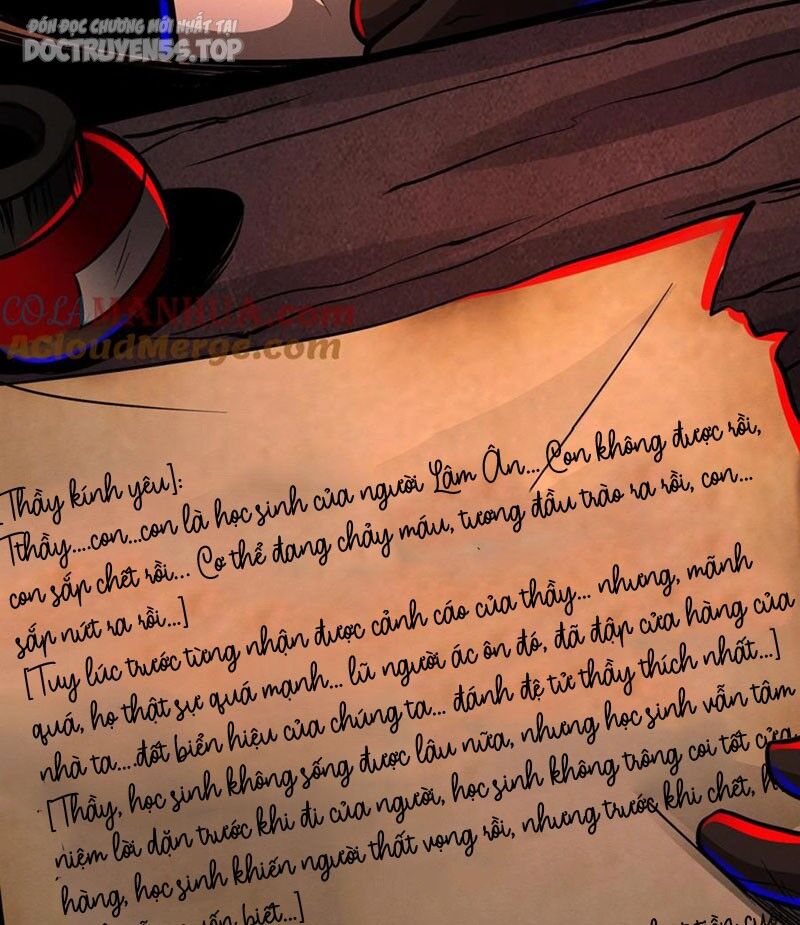 ĐÓN ĐỌC CHƯƠNG MỚI NHẤT TẠI
DOCTRUYEN5S.TOP
COLAMANHUA.com
ACloudMerge.com
[Thầy kính yêu]:
Tthầy....con...con là học sinh của người Lâm Ân... Con không được rồi,
con sắp chết rồi... Cơ thể đang chảy máu, tương đầu trào ra rồi, con...
sắp nứt ra rồi...]
[Tuy lúc trước từng nhận được cảnh cáo của thầy... nhưng, mãnh
quá, họ thật sự quá mạnh... lũ người ác ôn đó, đã đập cửa hàng của
nhà ta....đốt biển hiệu của chúng ta... đánh đệ tử thầy thích nhất...]
[Thầy, học sinh không sống được lâu nữa, nhưng học sinh vẫn tâm
niệm lời dặn trước khi đi của người, học sinh không trông coi tốt cửa
hàng, học sinh khiến người thất vọng rồi, nhưng trước khi chết,
biết...]